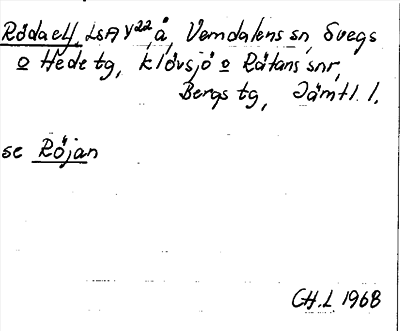 Rödaelf, LSA V22, å, Vemdalens sn, Svegs
o Hede tg, Klövsjö o Rätans snr,
Bergs tg, Jämtl. l.
se Röjan
CH.L 1968